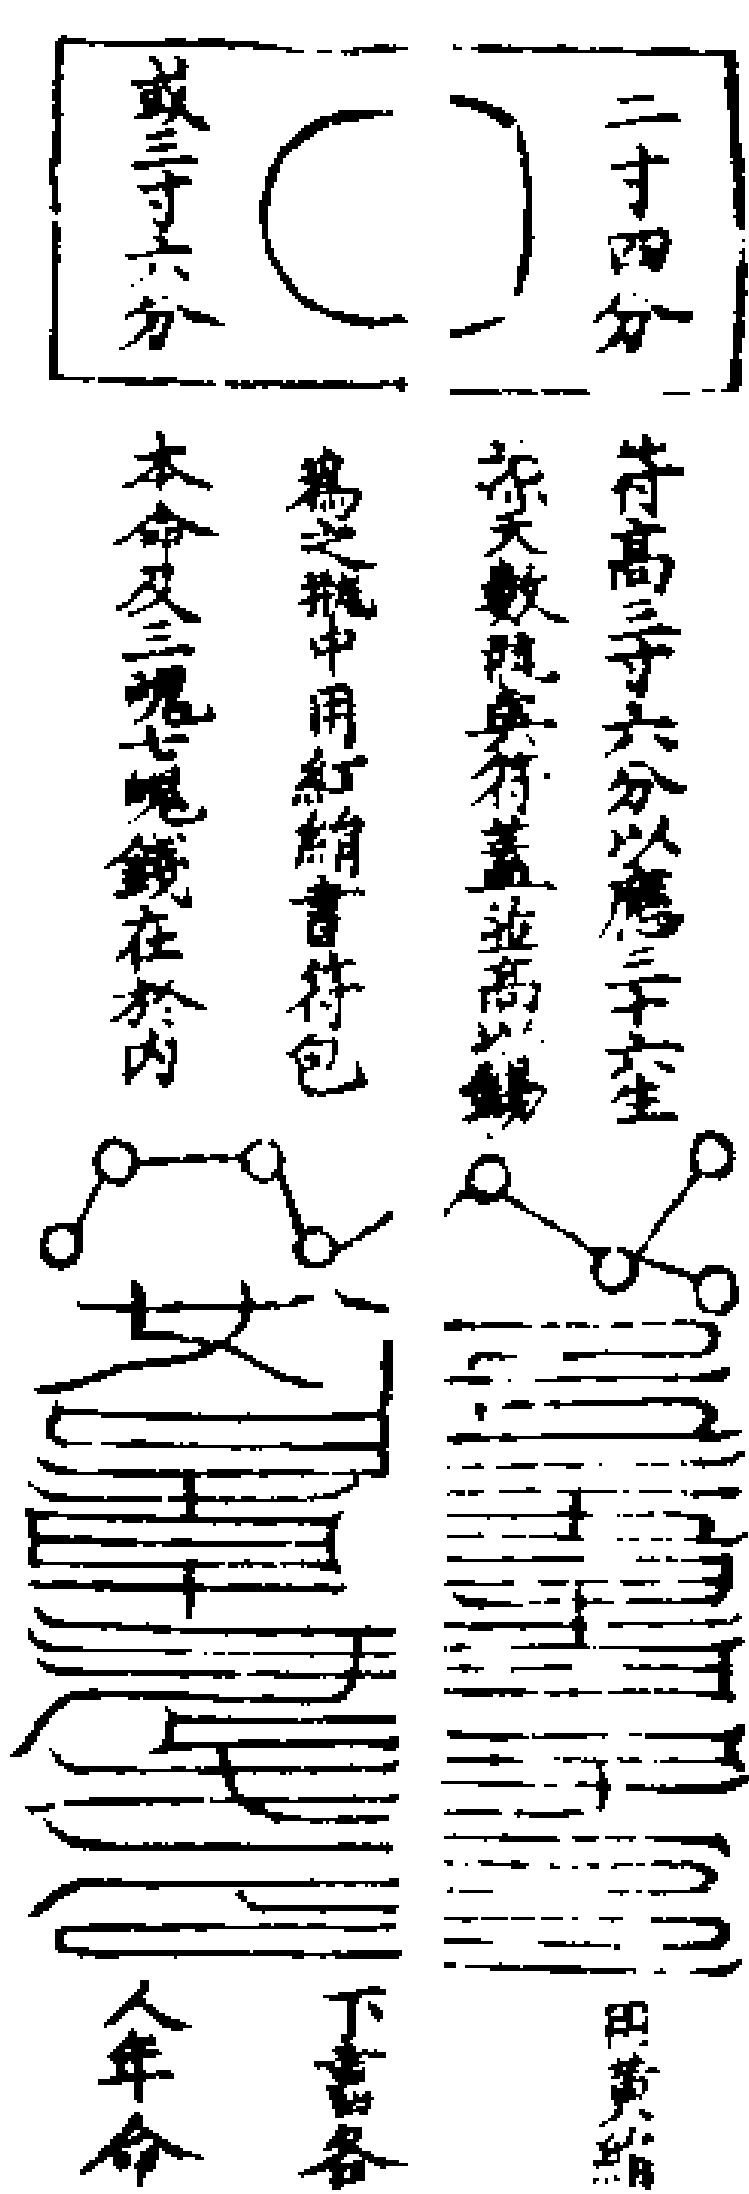 二寸四分
或三寸六分
符高三寸六分以應三十六生
天數 與符蓋並高以
為之瓶中用紅絹書符包
本命及三魂七魄錢在於內
用黃絹
下書各
人年命